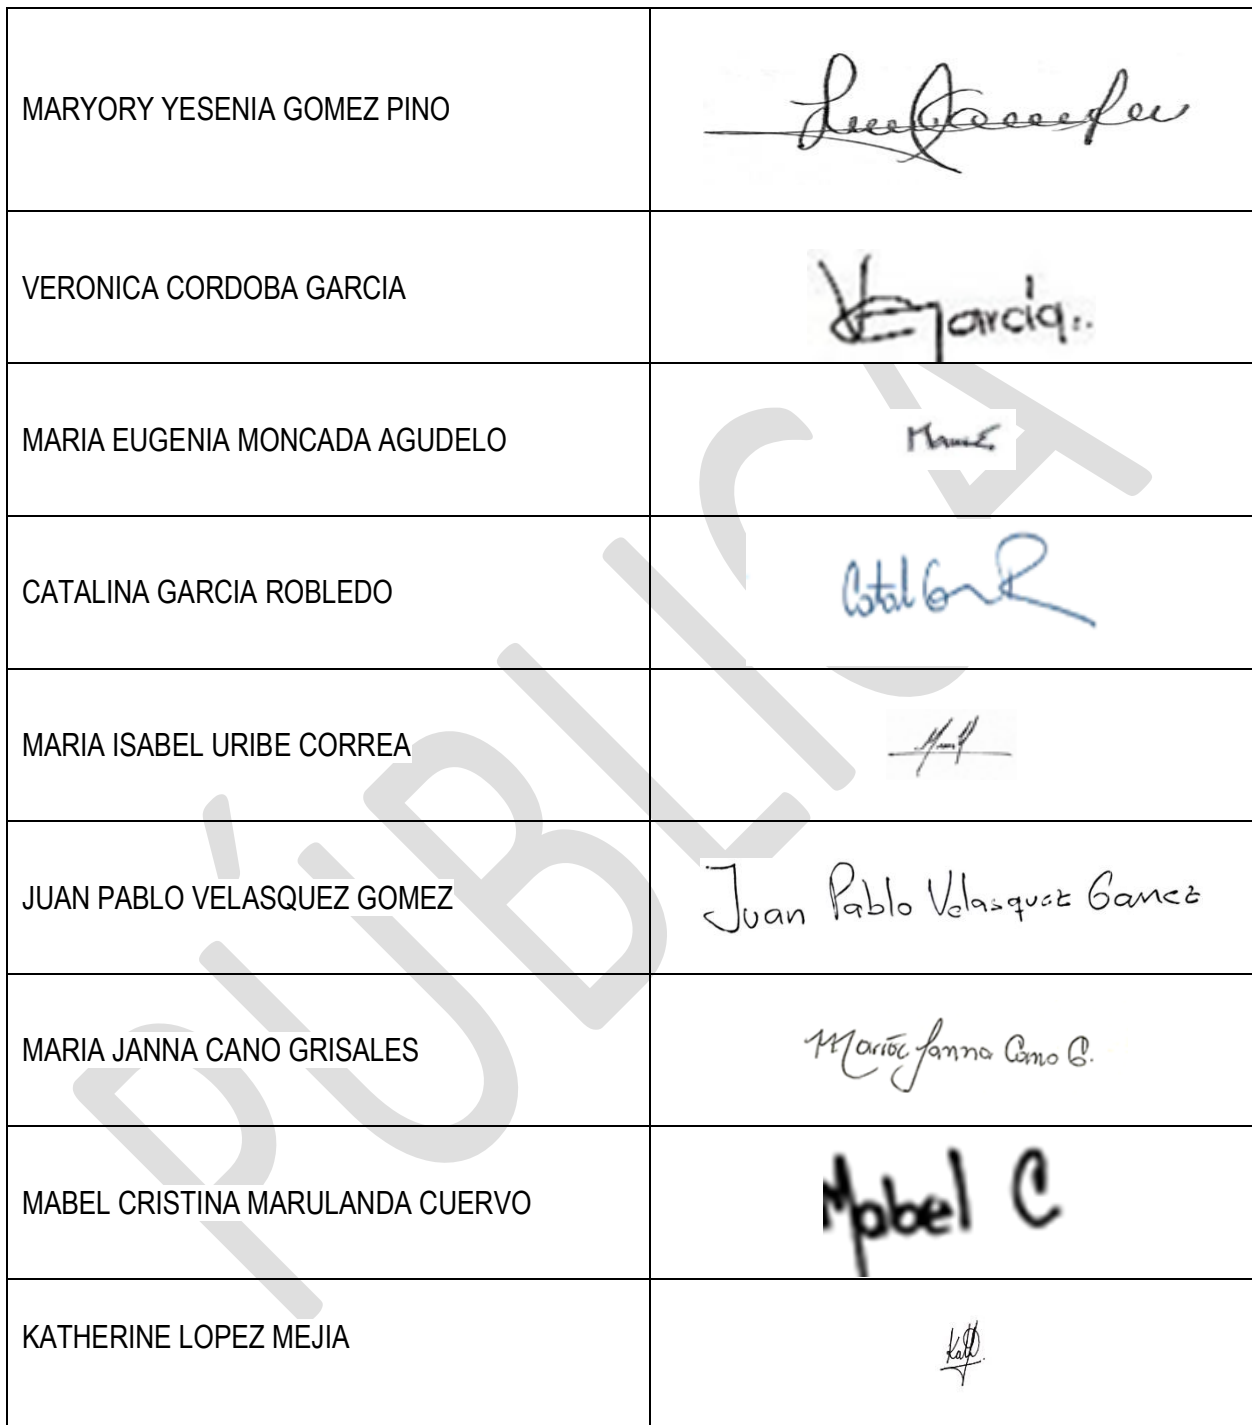 MARYORY YESENIA GOMEZ PINO
VERONICA CORDOBA GARCIA
Garcia
MARIA EUGENIA MONCADA AGUDELO
CATALINA GARCIA ROBLEDO
MARIA ISABEL URIBE CORREA
JUAN PABLO VELASQUEZ GOMEZ
Juan Pablo Velasquez
MARIA JANNA CANO GRISALES
Maria Janna Cano G.
MABEL CRISTINA MARULANDA CUERVO
Mabel C
KATHERINE LOPEZ MEJIA
PÚBLICA